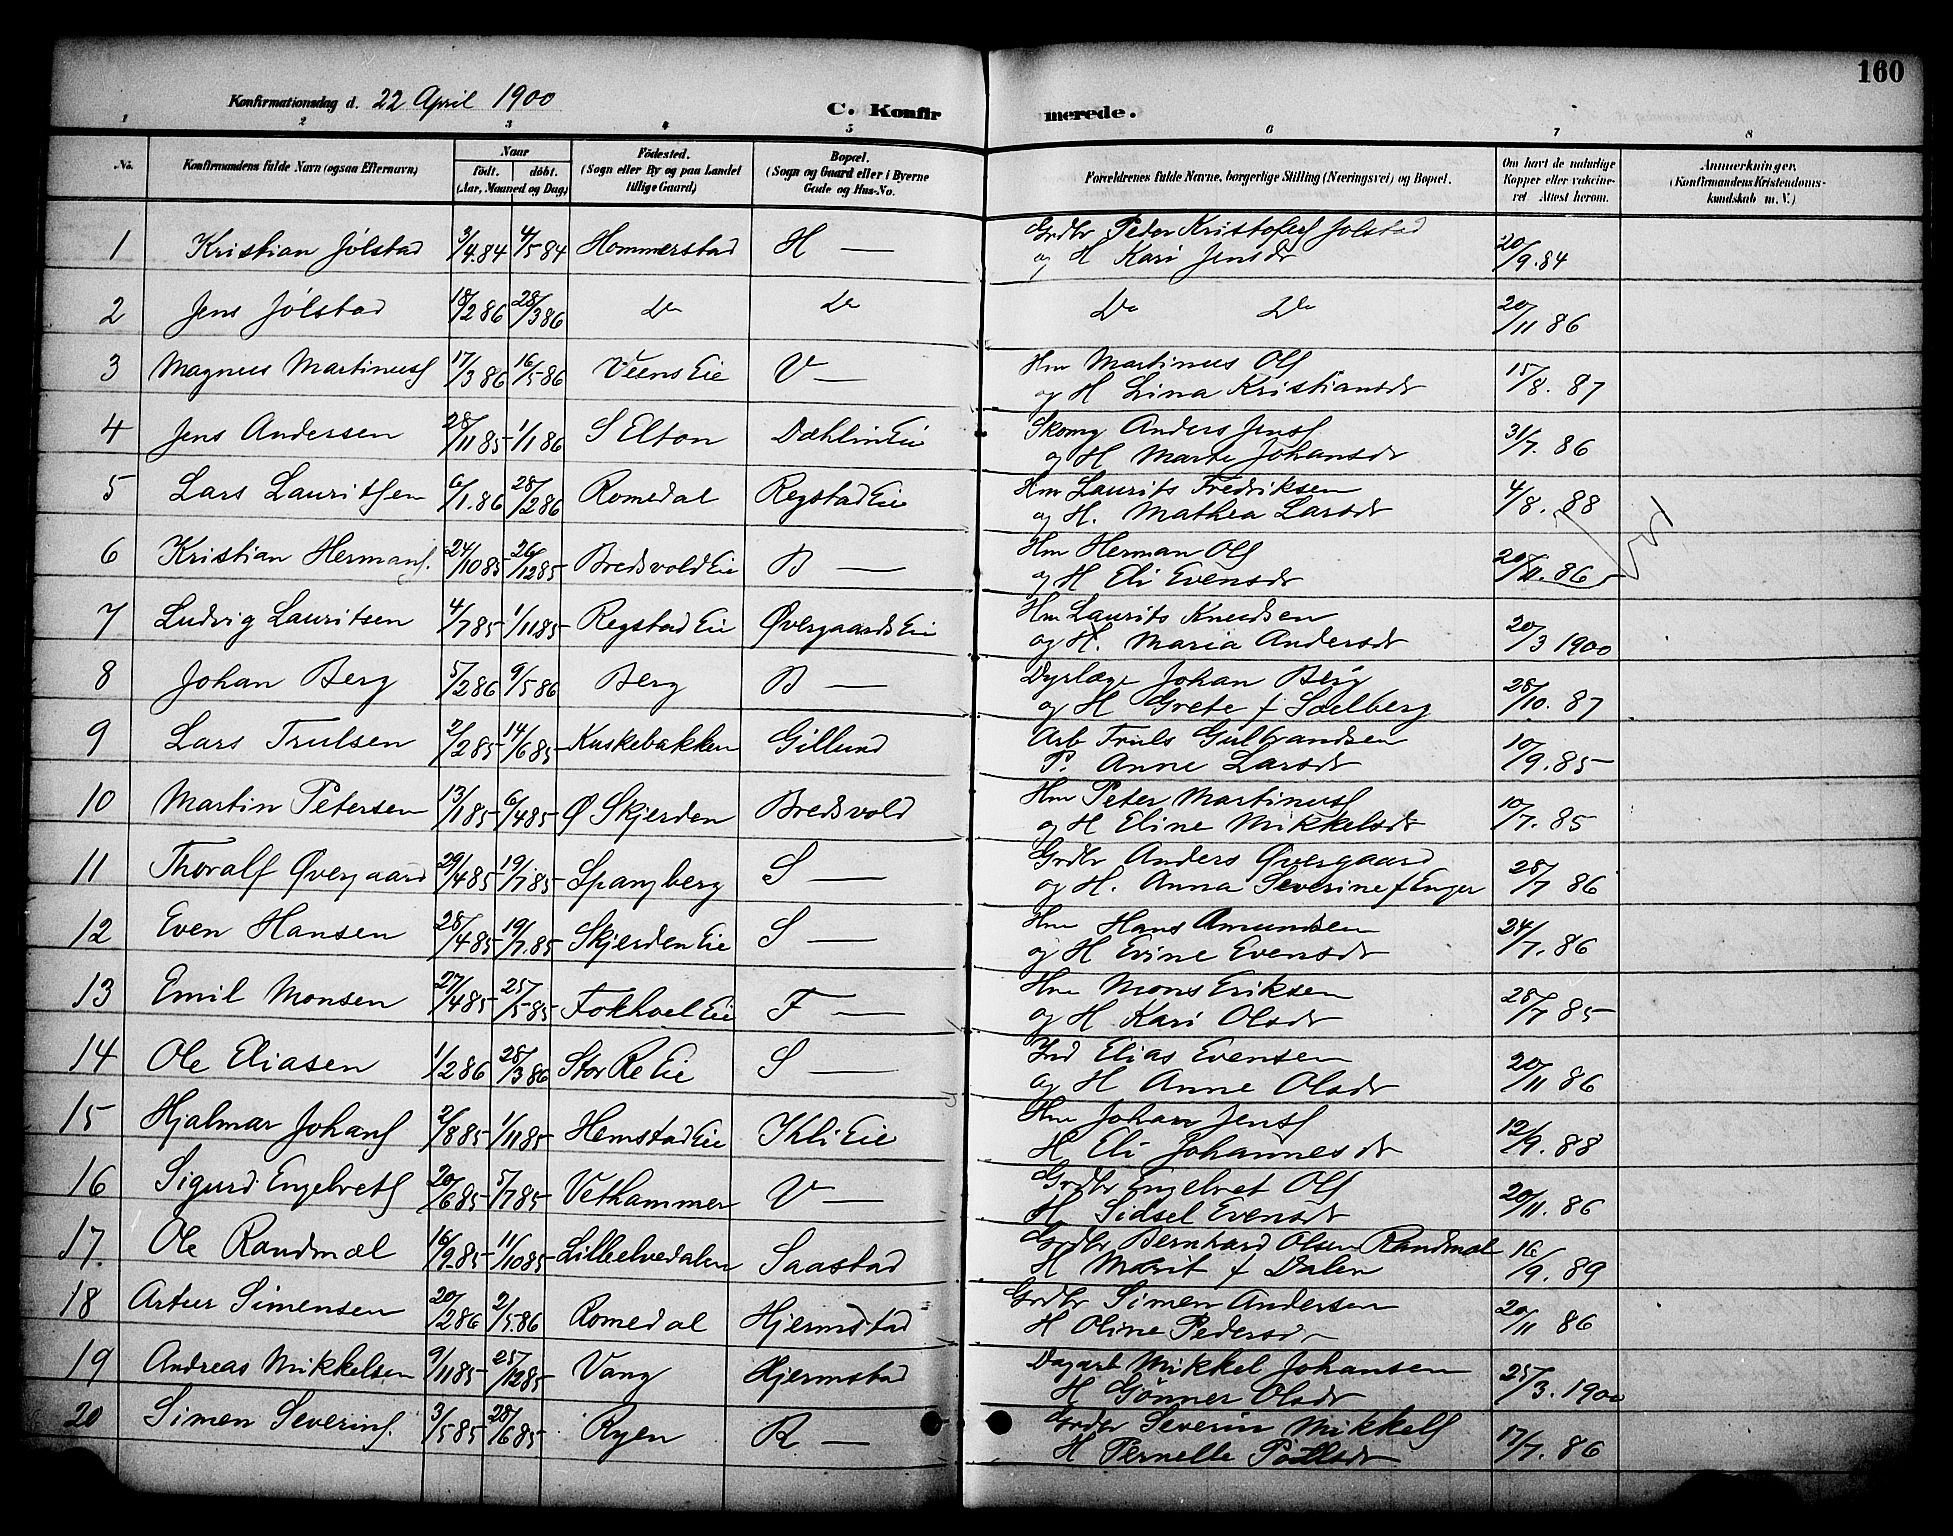 160
Konfirmationsdag d. 22 April 1900
C. Konfir merede.
1 2 3 4 5 6 7 8
No. Konfirmandens fulde Navn (ogsaa Efternavn) Naar født. døbt. (Aar, Maaned og Dag) Fødested. (Sogn eller By og paa Landet tillige Gaard) Bopæl. (Sogn og Gaard eller i Byerne Gade og Hus-No. Forældrenes fulde Navne, borgerlige Stilling (Næringsvei) og Bopæl. Om havt de naturlige Kopper eller vakcineret. Attest herom. Anmærkninger. (Konfirmandens Kristendomskundskab m. V.)
1 Kristian Jølstad 3/4.84 4/5 84 Hommerstad H — Grdbr Peder Kristofers Jølstad 20/9.84
og H Kari Jensdr
2 Jens Jølstad 18/2 86 28/3 86 Do Do Do Do 20/11 86
3 Magnus Martinusf 17/3 86 16/5 86 Veens Eie V — Hm Martinus Olf 15/8. 87
og H Lina Kristiansdr
4 Jens Andersen 28/11 85 1/1 86 S Elton Dæhlin Eie Skomg Anders Jensf 31/7. 86
og H Marte Johansdr
5 Lars Lauritsen 6/1.86 28/2 86 Romedal Regstad Eie Hm Laurits Fredriksen 4/8. 88
og H. Mathea Larsdr
6 Kristian Hermansf. 24/10 85 26/12 85 Bredsvold Eie B — Hm Herman Olf 20/11. 86
og H Eli Evensdr
7 Ludvig Lauritsen 4/7 85 1/11 85 Regstad Eie Øvergaards Eie Hm Laurits Knudsen 20/3 1900
og H. Maria Andersdr
8 Johan Berg 5/2 86 9/5 86 Berg B — Dyrlæge Johan Berg 28/10. 87
og H Grete f Solberg
9 Lars Trulsen 2/2 85 14/6 85 Kuskebakken Gillund Arb Truls Gulbrandsen 10/9. 85
P. Anne Larsdr
10 Martin Petersen 13/1 85 6/4 85 Ø Skjerden Bredsvold Hm Peter Martinusf 10/7. 85
og H Eline Mikkelsdr
11 Thoralf Øvergaard 29/4 85 19/7 85 Spangberg S — Grdbr Anders Øvergaard 28/7 86
og H. Anna Severine f Enger
12 Even Hansen 28/4 85 19/7.85 Skjerden Eie S — Hm Hans Amundsen 24/7. 86
og H Evine Evensdr
13 Emil Monsen 27/4 85 25/5 85 Fokhol Eie F — Hm Mons Eriksen 28/7 85
og H Kari Olsdr
14 Ole Eliasen 1/2 86 28/3 86 Stor Re Eie S — Ind Elias Evensen 20/11 86
og H Anne Olsdr
15 Hjalmar Johansf 2/8 85 1/11 85 Hemstad Eie Ihli Eie Hm Johan Jensf 12/9. 88
H Eli Johannesdr
16 Sigurd Engebretsf 20/6 85 5/7 85 Vethammer V — Grdbr Engebret Olf 20/11. 86
H Sidsel Evensdr
17. Ole Randmæl 16/9 85 11/10 85 Lilleelvedalen Saastad Grdbr Bernhard Olsen Randmæl 16/9. 89
H Marit f Dalen
18 Artur Simensen 20/2 86 2/5.86 Romedal Hjermstad Grdbr Simen Andersen 20/11 86
H Oline Pedersdr
19 Andreas Mikkelsen 9/11 85 25/12 85 Vang Hjermstad Dagarb Mikkel Johansen 25/3. 1900
H Gønner Olsdr
20 Simen Severinsf. 3/5 85 28/6 85 Ryen R — Grdbr Severin Mikkelsf 17/7. 86
H Pernelle Poulsdr